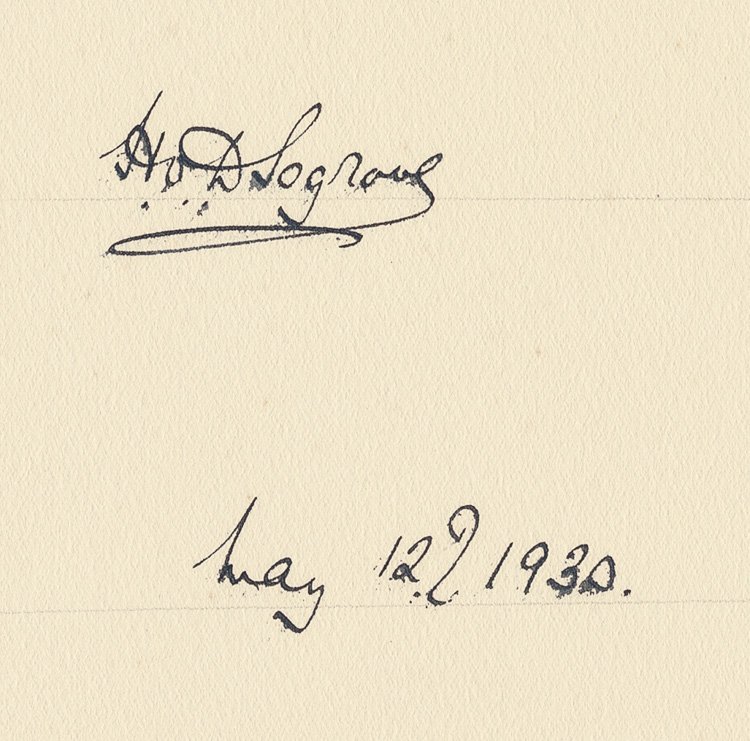 H.O.D. Segrave
May 12th 1930.